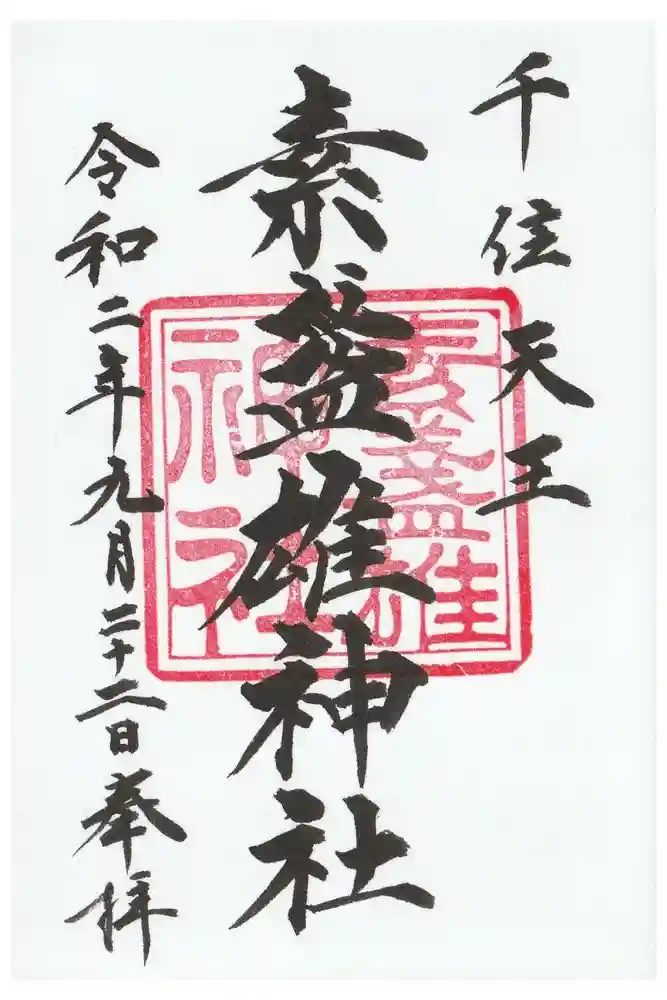 千住天王
素盞雄神社
素盞雄
神社
令和二年九月二十二日奉拝